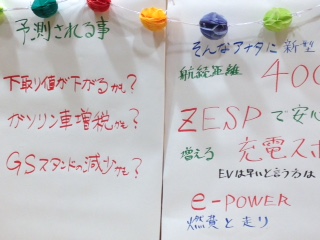 予測される事
下取り値が下がるかも?
ガソリン車増税かも?
GSスタンドの減少かも?
そんなアナタに新型
航続距離 400
ZESPで安心
増える 充電スポ
EVは早いと言う方は
e-POWER
燃費と走り